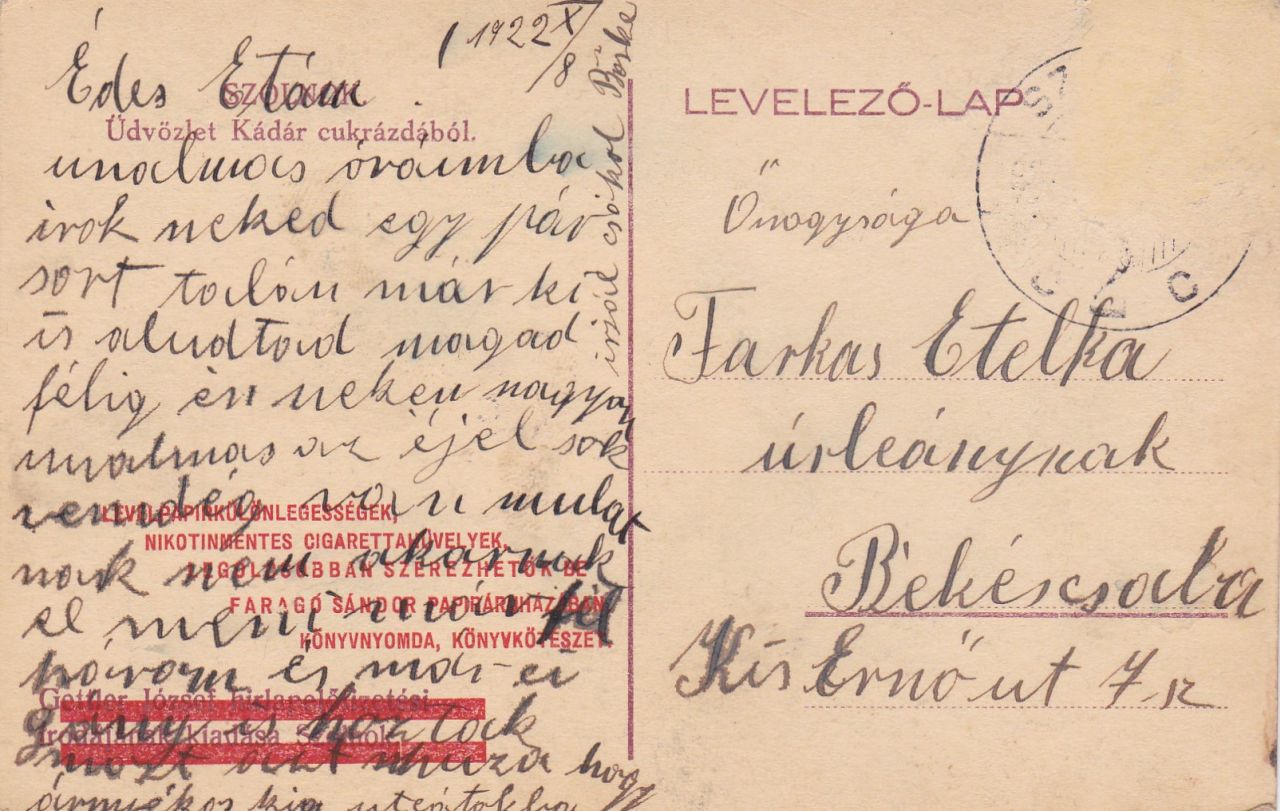 1922 X/8
Édes Etám
SZOLNOK
Üdvözlet Kádár cukrázdából.
unalmas óráimba
irok neked egy pár
sort talán már ki
is aludtad magad
félig én nekem nagyon
unalmas az éjel sok
vendég van mulat
nak nem akarnak
el menni már fél
három és
is hoztak
most azt huzza hogy
csókol Böske
LEVÉLPAPIRKÜLÖNLEGESSÉGEK,
NIKOTINMENTES CIGARETTAHÜVELYEK,
LEGOLCSÓBBAN SZEREZHETŐK BE
FARAGÓ SÁNDOR PAPIRÁRUHÁZÁBAN,
KÖNYVNYOMDA, KÖNYVKÖTÉSZET.
József hirlapelőfizetési
irodájának kiadása Szolnok
LEVELEZŐ-LAP
Őnagysága
Farkas Etelka
úrleánynak
Békéscsaba
Kis Ernő ut 7 sz